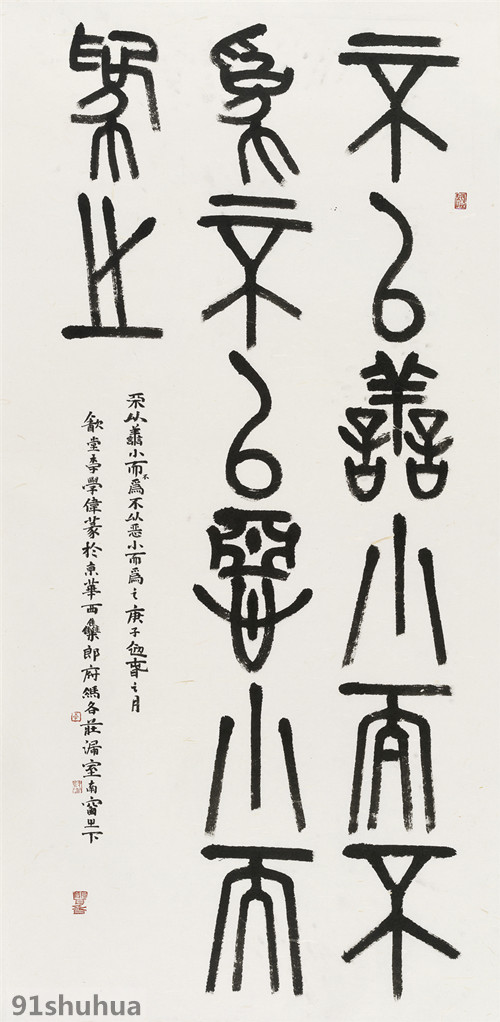 不以譱小而不
爲不以惡小而
爲之
不以譱小而不爲不以恶小而爲之庚子仲夏之月
堂李學偉篆於京華西集郎府馮各莊漏室南窗之下
91shuhua